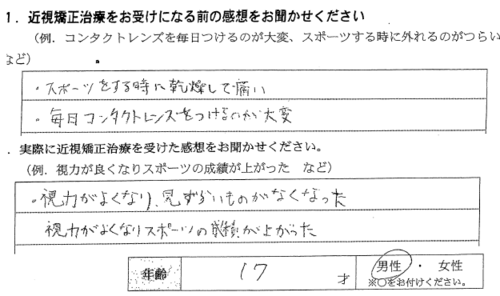 1. 近視矯正治療をお受けになる前の感想をお聞かせください
(例. コンタクトレンズを毎日つけるのが大変、スポーツする時に外れるのがつらい
など)
・スポーツをする時に乾燥して痛い
・毎日コンタクトレンズをつけるのが大変
. 実際に近視矯正治療を受けた感想をお聞かせください。
(例. 視力が良くなりスポーツの成績が上がった など)
・視力がよくなり、見ずらいものがなくなった
視力がよくなりスポーツの成績が上がった
年齢 17 才 男性 ・ 女性
※○をお付けください。